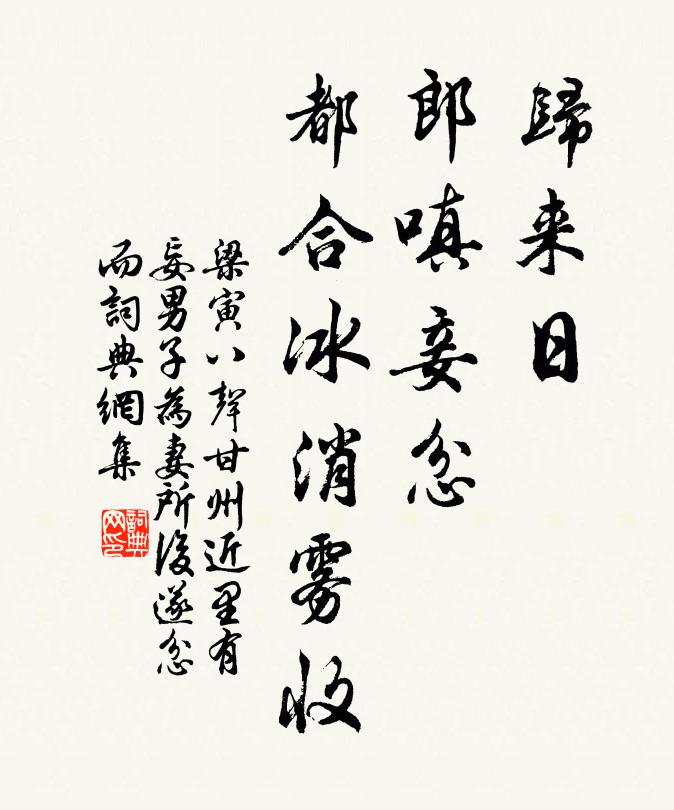 歸来日
郎嗔妾忿
都合冰消雾收
梁寅八聲甘州近里有
妄男子為妻所後遂忿
而詞典網集
詞典网印